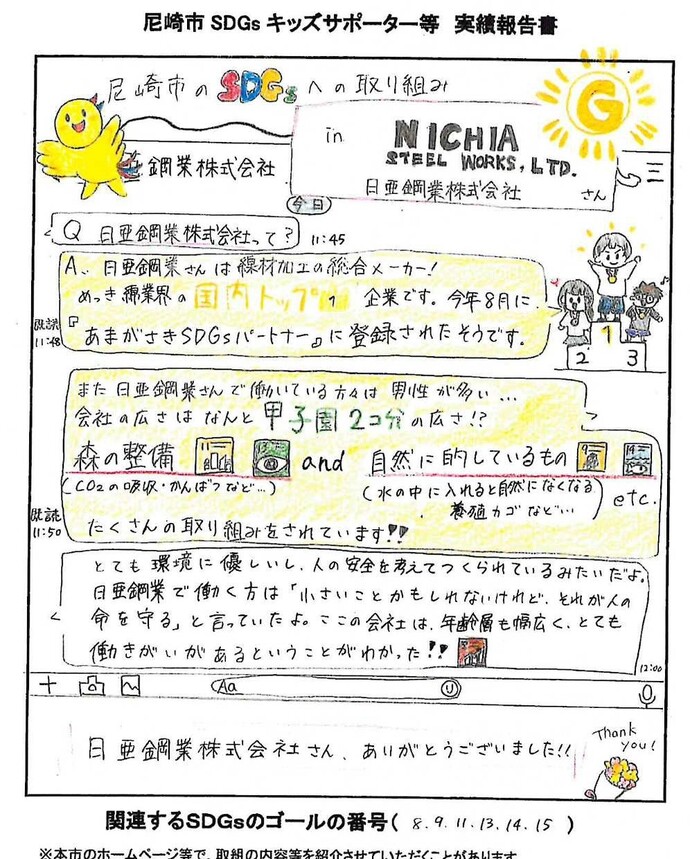 尼崎市 SDGs キッズサポーター等　実績報告書
尼崎市のSDGsへの取り組み
G
in NICHIA
STEEL WORKS, LTD.
日亜鋼業株式会社 さん
鋼業株式会社
今日
Q 日亜鋼業株式会社って?
11:45
A、日亜鋼業さんは線材加工の総合メーカー!
めっき線業界の国内トップ 企業です。今年8月に
『あまがさきSDGsパートナー』に登録されたそうです。
既読
11:48
1
2
3
また日亜鋼業さんで働いている方々は男性が多い…
会社の広さはなんと甲子園2コ分の広さ!?
森の整備 and 自然に的しているもの
(CO2の吸収・かんばつなど…)
(水の中に入れると自然になくなる
養殖カゴなど…)
etc.
既読
11:50
たくさんの取り組みをされています!!
とても環境に優しいし、人の安全を考えてつくられているみたいだよ。
日亜鋼業で働く方は「小さいことかもしれないけれど、それが人の
命を守る」と言っていたよ。ここの会社は、年齢層も幅広く、とても
働きがいがあるということがわかった!!
12:00
Aa
日亜鋼業株式会社さん、ありがとうございました!!
Thank
you!
関連するSDGsのゴールの番号( 8.9.11.13.14.15 )
※本市のホームページ等で、取組の内容等を紹介させていただくことがあります